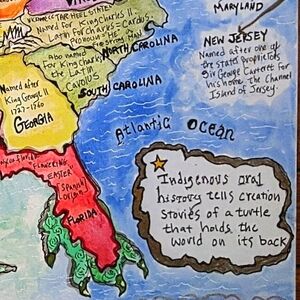 MARYLAND
NICKNAME: "TAR HEEL STATE"
Named for King Charles II
Latin for Charles = Carolus
NORTH CAROLINA
Also named
King Charles
the Latin
CAROLUS
SOUTH CAROLINA
NEW JERSEY
Named after one of
its state proprietors
Sir George Carteret for
his home The Channel
Island of Jersey.
Named after
King George II
1727-1760
GEORGIA
Atlantic Ocean
"FLOWERING
EASTER"
Spanish
origin
FLORIDA
Indigenous oral
history tells creation
stories of a turtle
that holds the
world on its back